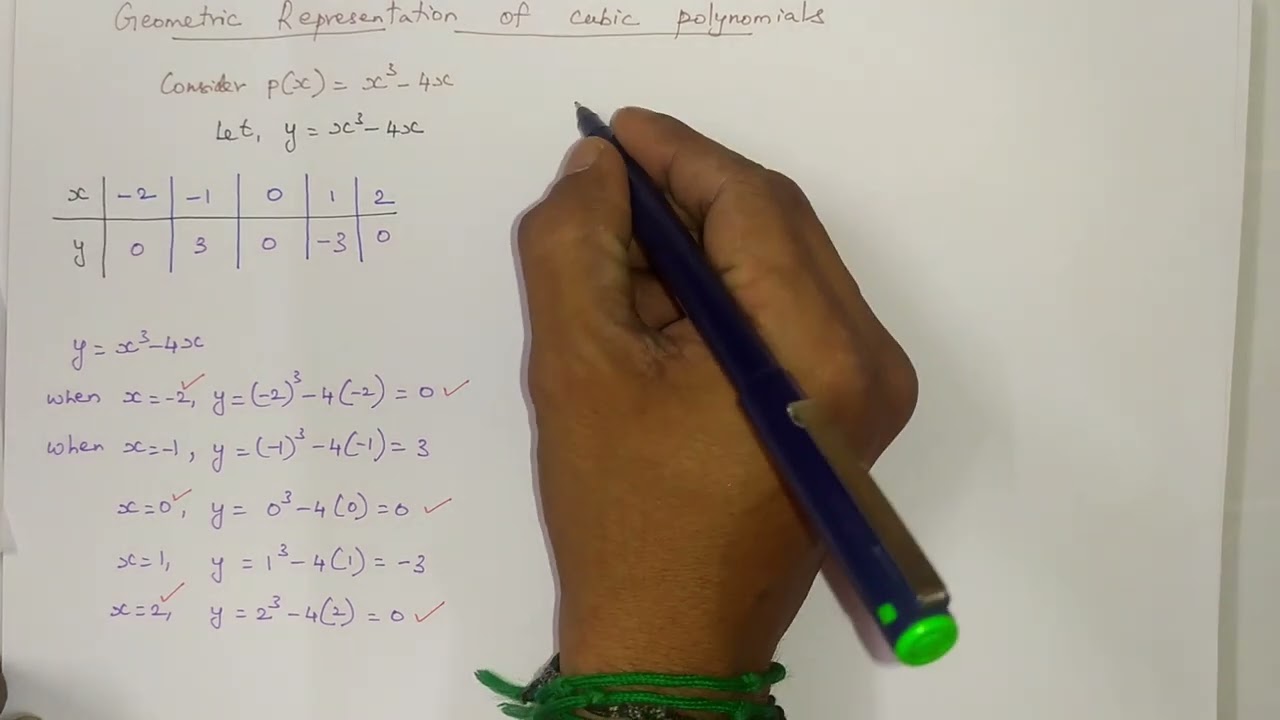 Geometric Representation of cubic polynomials
Consider p(x) = x³ - 4x
Let, y = x³ - 4x
x | -2 | -1 | 0 | 1 | 2
y | 0 | 3 | 0 | -3 | 0
y = x³ - 4x
when x = -2, y = (-2)³ - 4(-2) = 0 ✓
when x = -1, y = (-1)³ - 4(-1) = 3
x = 0, y = 0³ - 4(0) = 0 ✓
x = 1, y = 1³ - 4(1) = -3
x = 2, y = 2³ - 4(2) = 0 ✓